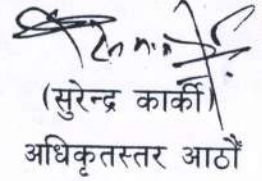 (सुरेन्द्र कार्की)
अधिकृतस्तर आठौं